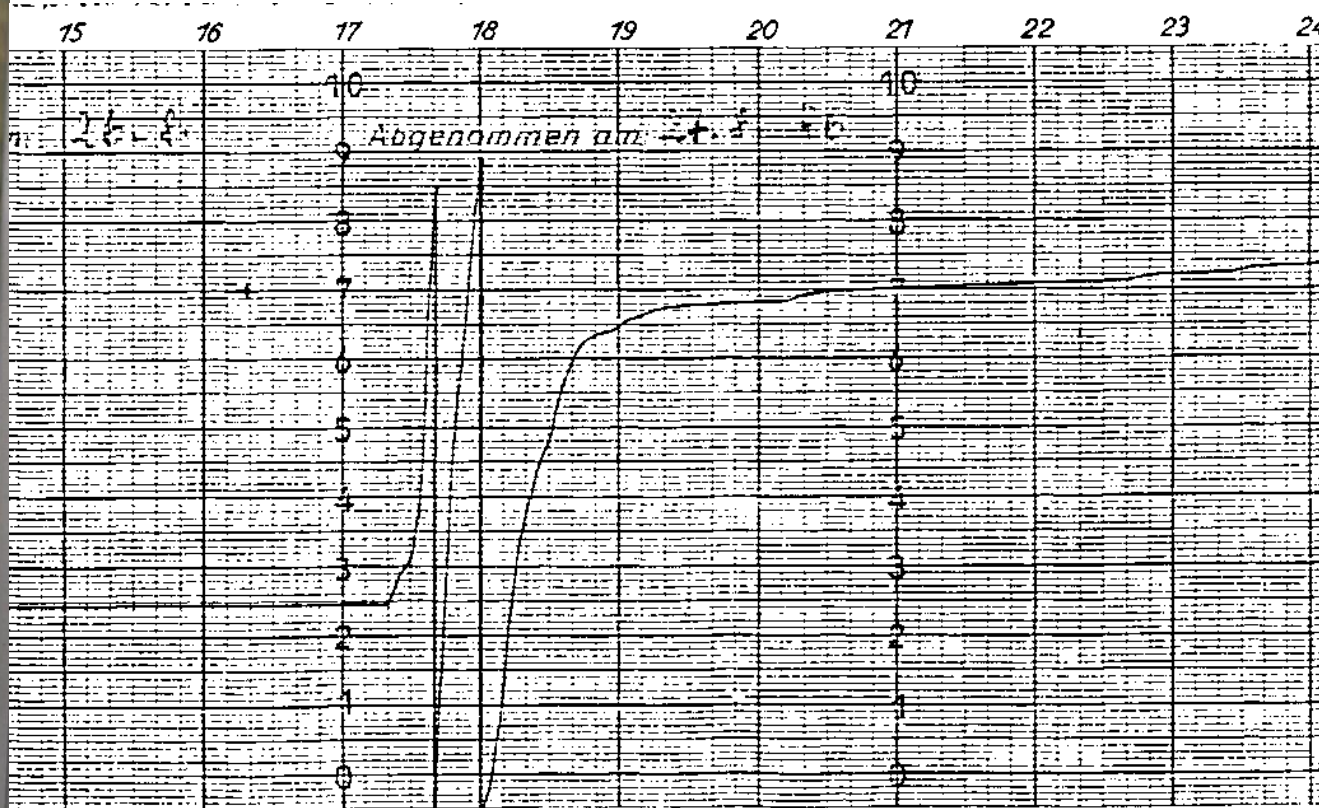 15 16 17 18 19 20 21 22 23 24
10 10
Abgenommen am:
9 9
8 8
7 7
6 6
5 5
4 4
3 3
2 2
1 1
0 0